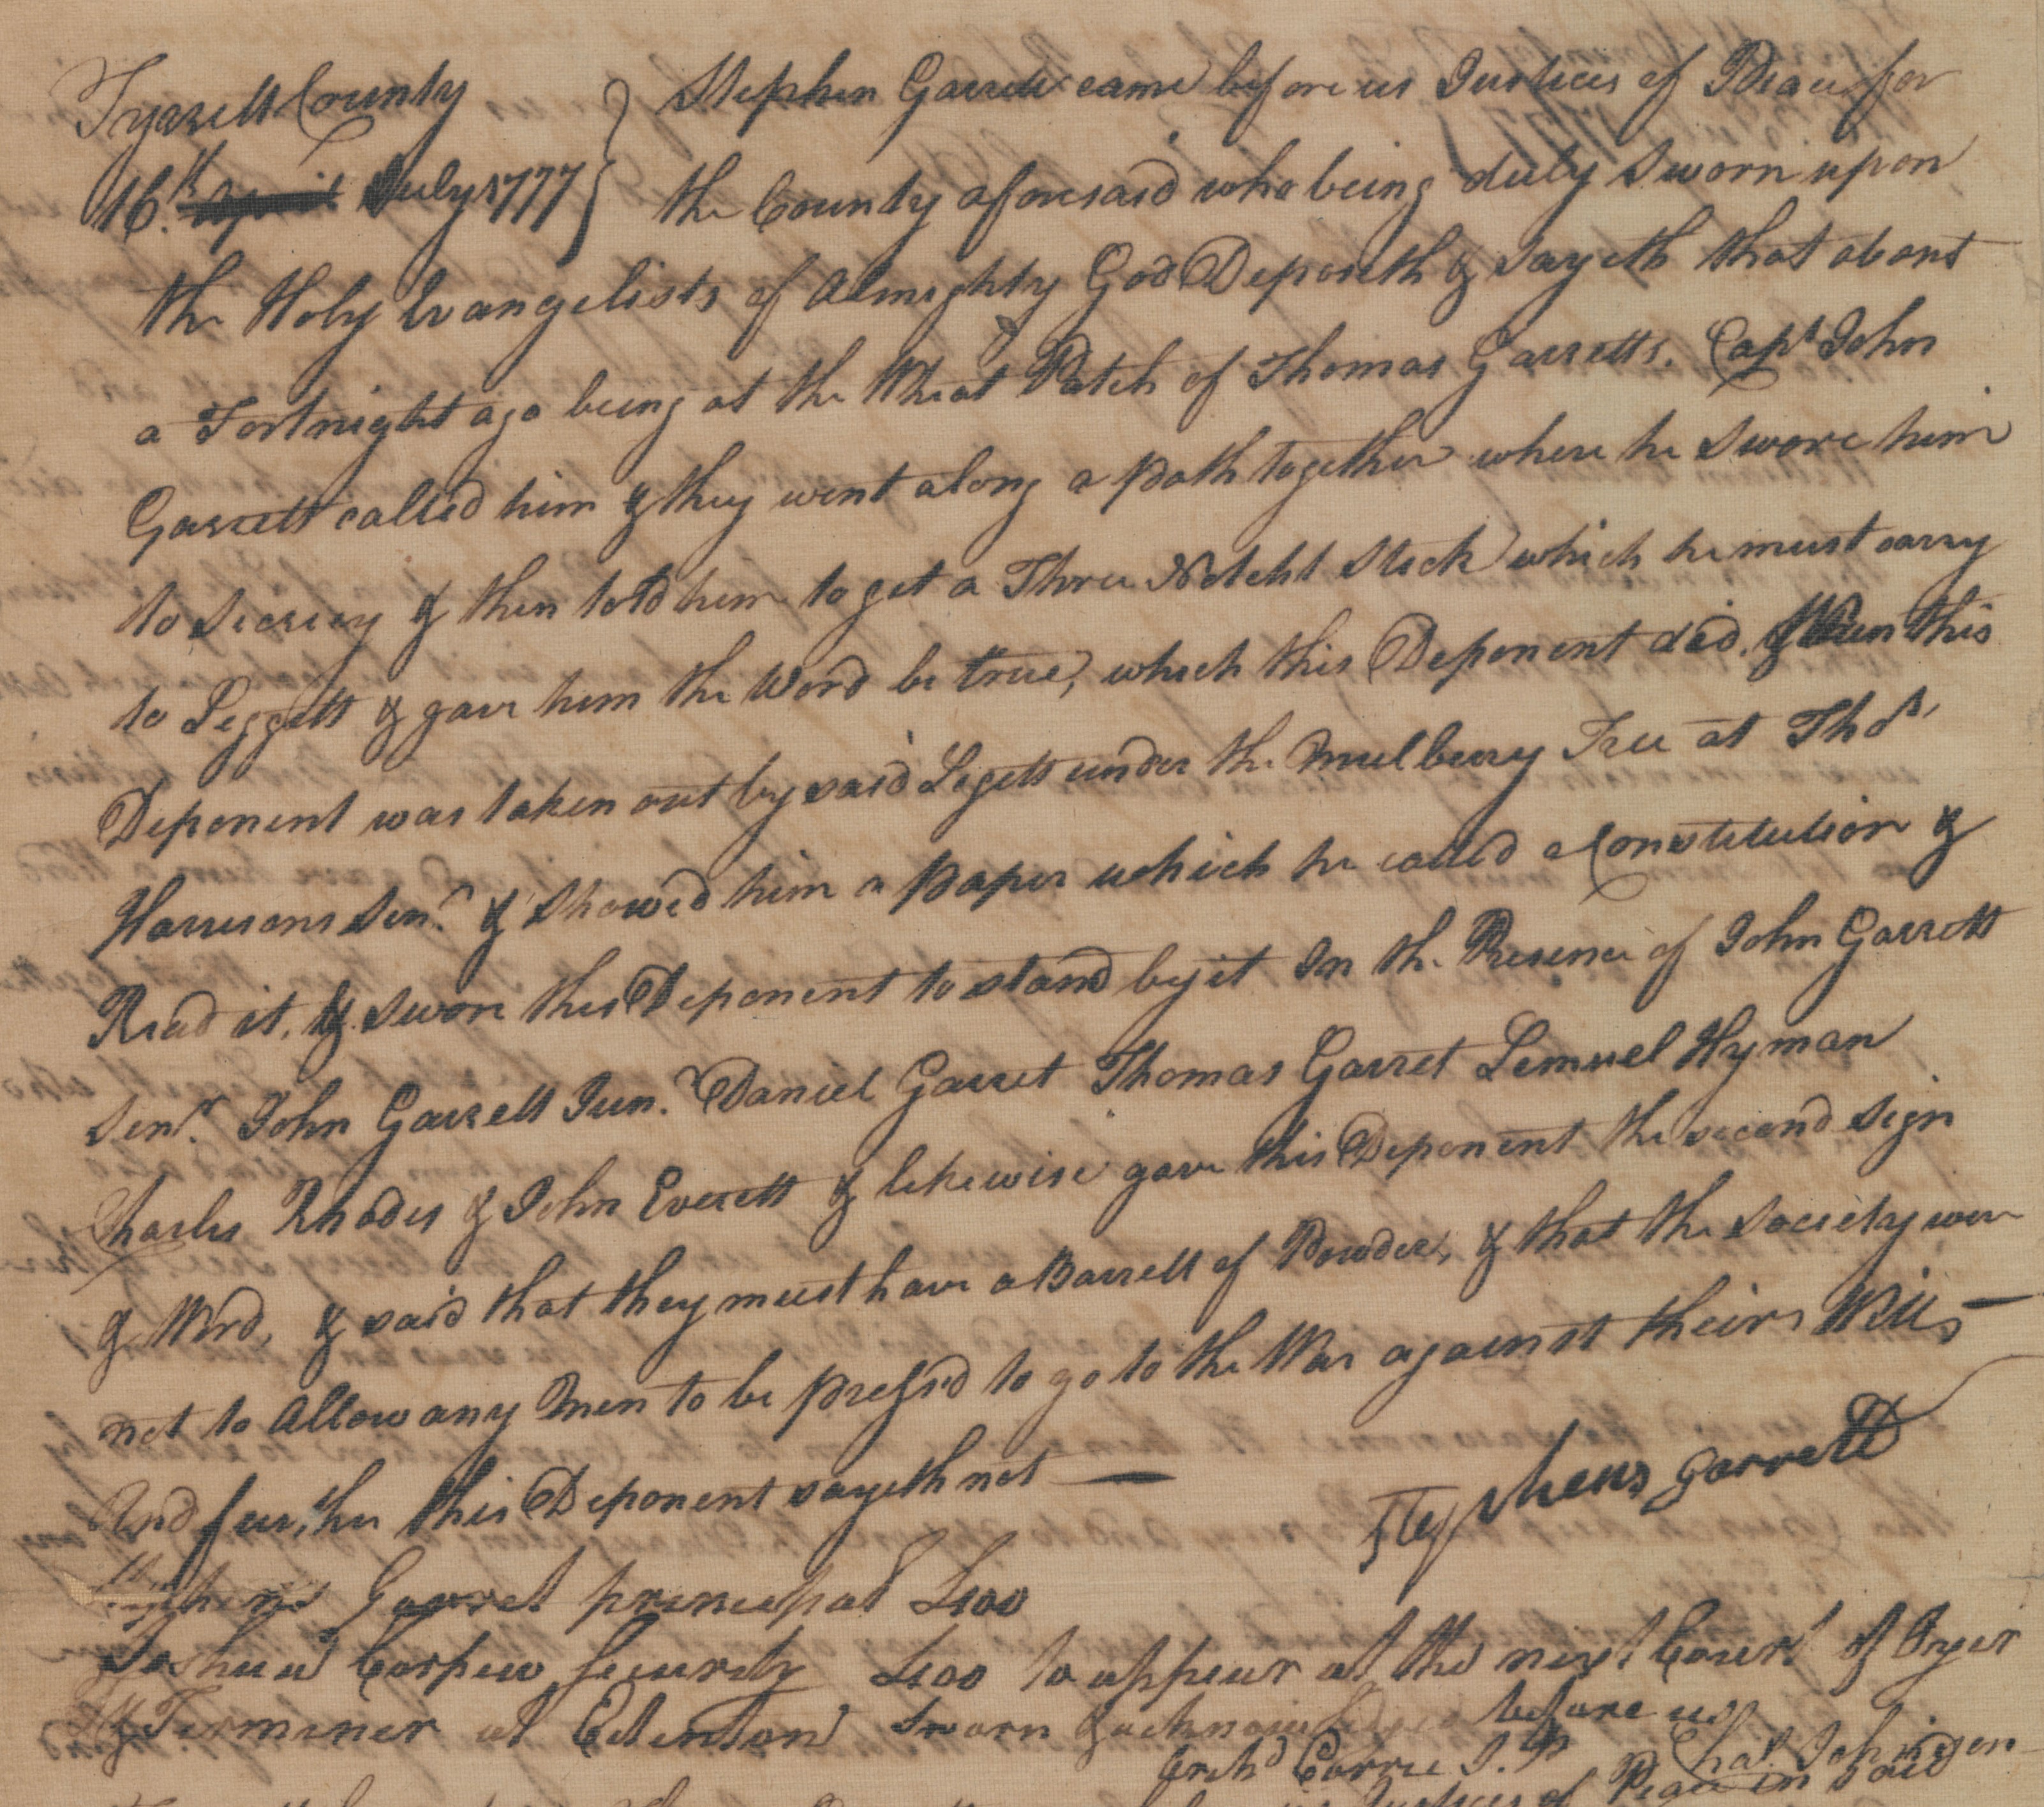 Tyrrell County } Stephen Garrett came before us Justices of Peace for
16.th April July 1777 } the County aforesaid who being duly Sworn upon
the Holy Evangelists of Almighty God Deposeth & Sayeth that about
a Fortnight ago being at the Wheat Patch of Thomas Garretts. Capt John
Garrett called him & they went along a path together where he Swore him
to Secrecy & then told him to get a Three Notcht Stick which he must carry
to Leggett & gave him the Word be true, which this Deponent did. & then this
Deponent was taken out by said Legett under the Mulberry Tree at Thos.
Harrisons Senr. & Showed him a paper which he called a Constitution &
Read it. & Swore this Deponent to stand by it In the Presence of John Garrett
Senr. John Garrett Junr. Daniel Garret Thomas Garret Lemuel Hyman
Charles Rhodes & John Everett & likewise gave this Deponent the second sign
& Word, & said that they must have a Barrell of Powder, & that the Society were
not to Allow any Men to be press'd to go to the War against theirs Wills —
And further this Deponent sayeth not —
Stephens Garrett
Stephens Garret principal £100
Joshua Corpew Security £100 to appear at the next Court of Oyer
& Terminer at Edenton Sworn & acknowledged before us
Archd Corrie J.P Chas. Johnson
Justices of Peace in said